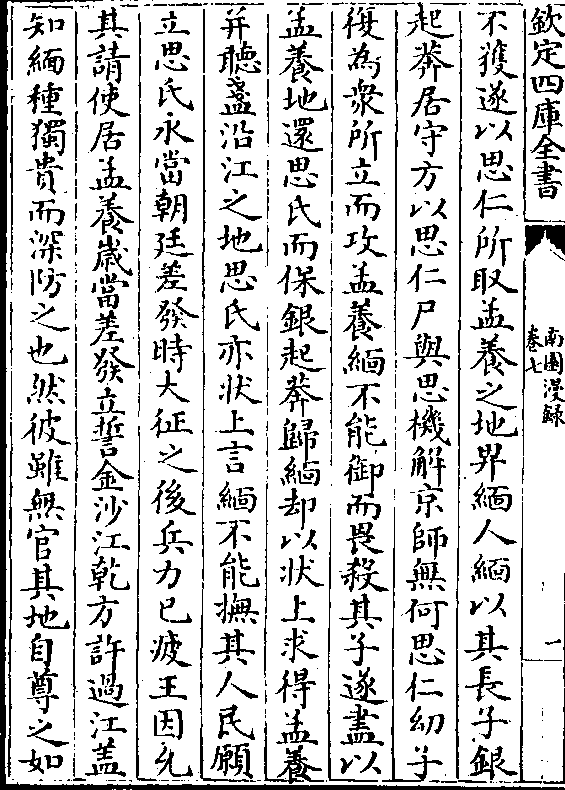 欽定四庫全書
南園漫録
卷七
一
不獲遂以思仁所取孟養之地畀緬人緬以其長子銀
起莽居守方以思仁尸與思機解京師無何思仁幼子
復為衆所立而攻孟養緬不能御而畏殺其子遂盡以
孟養地還思氏而保銀起莽歸緬却以狀上求得孟養
并聽盞沿江之地思氏亦狀上言緬不能撫其人民願
立思氏永當朝廷差發時大征之後兵力已疲王因允
其請使居孟養嵗當差發立誓金沙江乾方許過江盖
知緬種獨貴而深防之也然彼雖無官其地自尊之如